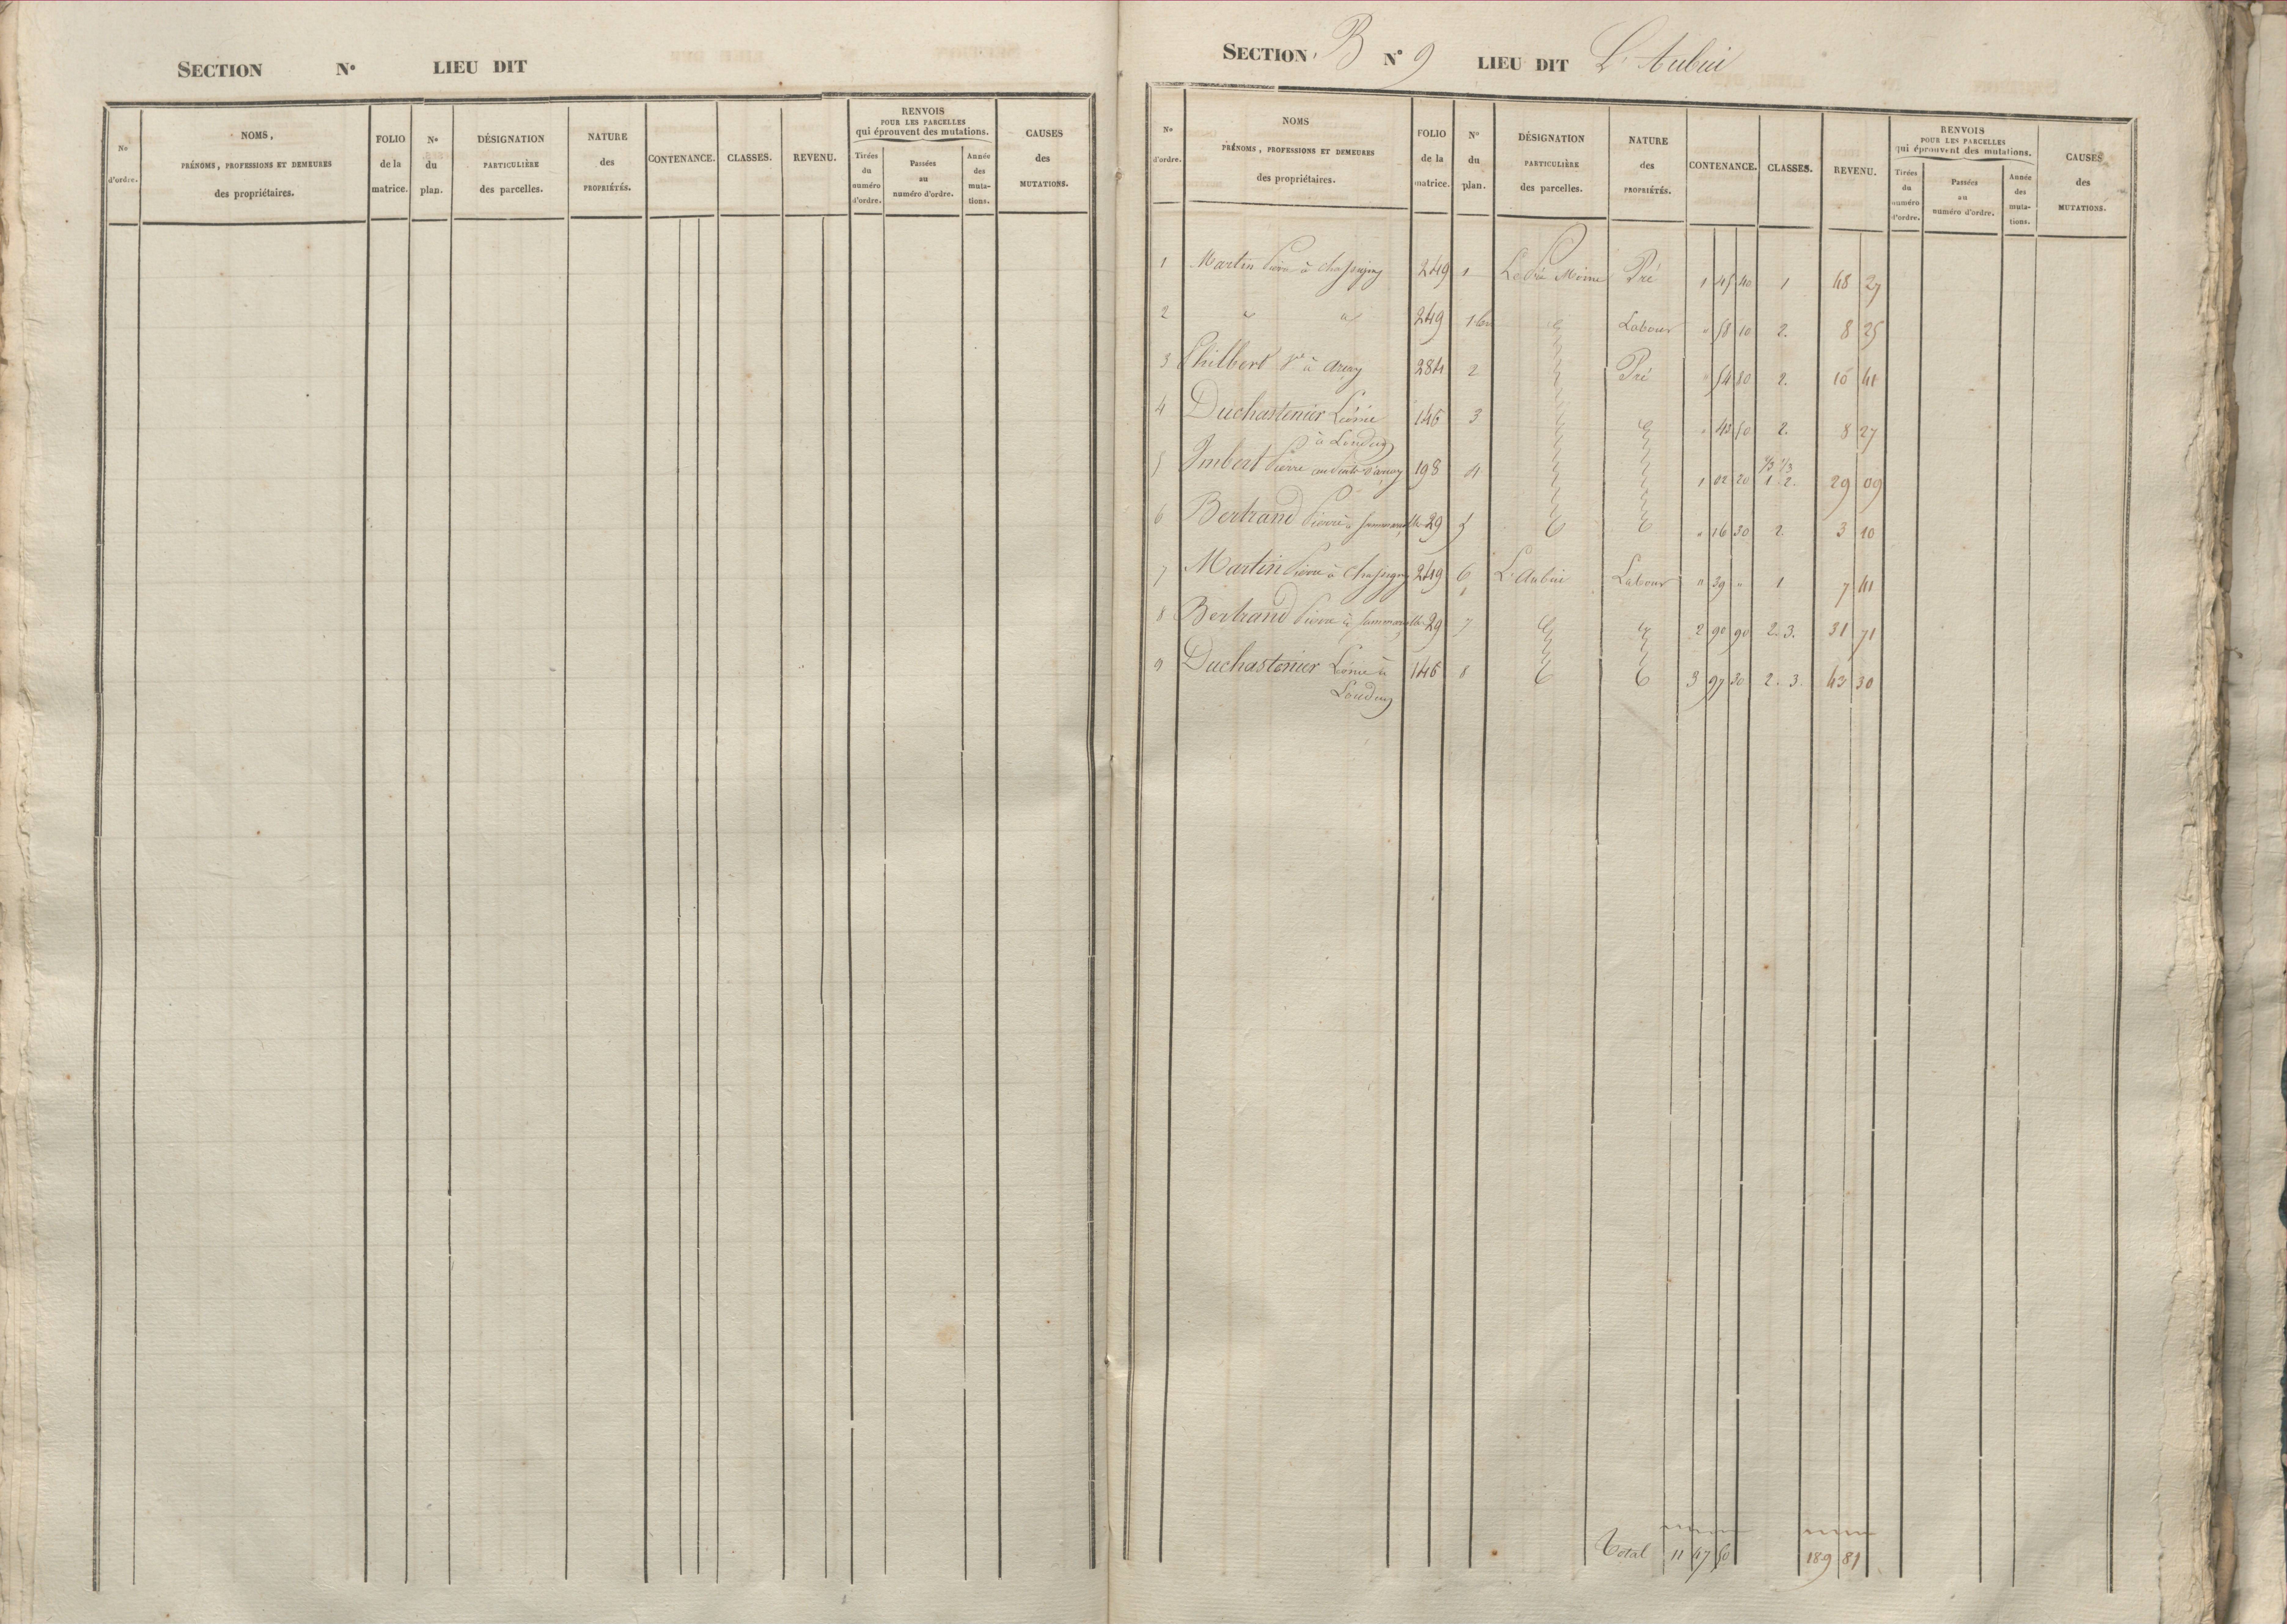 SECTION N° LIEU DIT
N° d'ordre.
NOMS,
PRÉNOMS, PROFESSIONS ET DEMEURES
des propriétaires.
FOLIO de la matrice.
N° du plan.
DÉSIGNATION PARTICULIÈRE des parcelles.
NATURE des PROPRIÉTÉS.
CONTENANCE.
CLASSES.
REVENU.
RENVOIS
POUR LES PARCELLES
qui éprouvent des mutations.
Tirées du numéro d'ordre.
Passées au numéro d'ordre.
Année des muta-tions.
CAUSES des MUTATIONS.
SECTION B N° 9 LIEU DIT L'Aubui
N° d'ordre.
NOMS
PRÉNOMS, PROFESSIONS ET DEMEURES
des propriétaires.
FOLIO de la matrice.
N° du plan.
DÉSIGNATION PARTICULIÈRE des parcelles.
NATURE des PROPRIÉTÉS.
CONTENANCE.
CLASSES.
REVENU.
RENVOIS
POUR LES PARCELLES
qui éprouvent des mutations.
Tirées du numéro d'ordre.
Passées au numéro d'ordre.
Année des muta-tions.
CAUSES des MUTATIONS.
1 Martin Pierre à Chassigny 249 1 Le Pré Moine Pré 1 45 40 1 48 27
2 " " 249 1 bis Labour " 58 10 2. 8 25
3 Philbert 284 2 Pré " 54 80 2. 10 41
4 Duchastenier 146 3 " 43 50 2. 8 27
à Loudun
5 Imbert Pierre 198 4 1 02 20 1. 2. 29 09
6 Bertrand Pierre à 29 5 " 16 30 2. 3 10
7 Martin Pierre à Chassigny 249 6 L'Aubui Labour " 39 " 1 7 41
8 Bertrand Pierre à 29 7 2 90 90 2. 3. 31 71
9 Duchastenier à 146 8 3 97 30 2. 3. 43 30
Loudun
Total 11 47 50 189 81